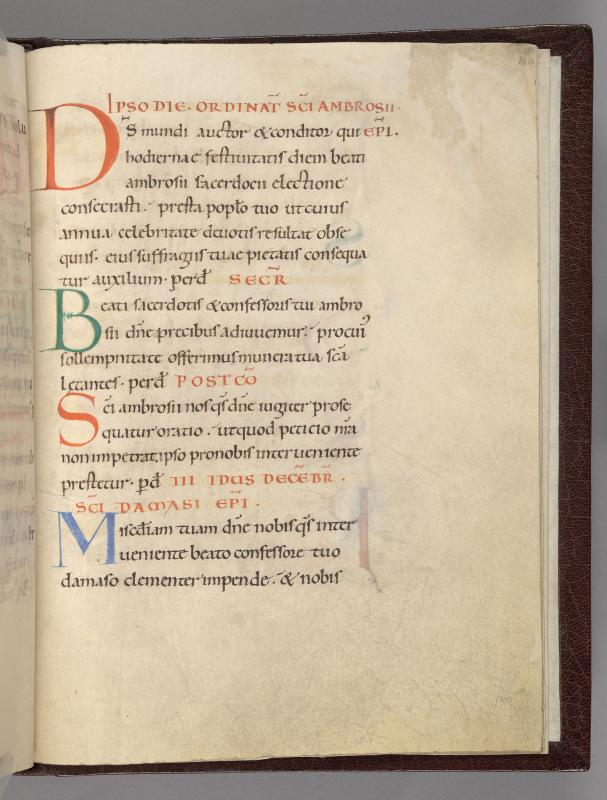 180
IPSO DIE · ORDINAT̄ SC̄I AMBROSII ·
DS̄ mundi auctor & conditor qui EP̄I .
hodiernae festiuitatis diem beati
ambrosii sacerdotii electione
consecrasti . presta popłō tuo ut cuius
annua celebritate deuotis resultat obse
quiis . eius suffragiis tuae pietatis consequa
tur auxilium . perd̄ SECR̄
Beati sacerdotis & confessoris tui ambro
sii dn̄e precibus adiuuemur . pro cuiꝰ
sollempnitate offerimus munera tua sc̄ā
letantes . perd̄ POST CŌ
Sc̄i ambrosii nos qs̄ dn̄e iugiter prose
quatur oratio . ut quod peticio nr̄a
non impetrat ipso pro nobis interueniente
prestetur . pd̄ III IDUS DECĒBR̄ .
SC̄I DAMASI EP̄I .
Misc̄diam tuam dn̄e nobis qs̄ inter
ueniente beato confessore tuo
damaso clementer impende . & nobis